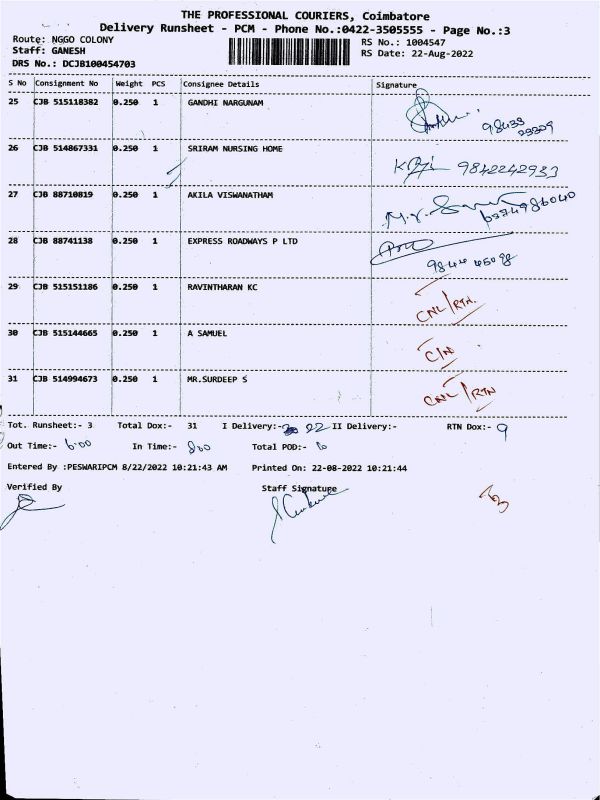 THE PROFESSIONAL COURIERS, Coimbatore
Delivery Runsheet - PCM - Phone No.:0422-3505555 - Page No.:3
Route: NGGO COLONY
Staff: GANESH
DRS No.: DCJB100454703
RS No.: 1004547
RS Date: 22-Aug-2022
S No Consignment No Weight PCS Consignee Details Signature
25 CJB 515118382 0.250 1 GANDHI NARGUNAM
26 CJB 514867331 0.250 1 SRIRAM NURSING HOME 9842242933
27 CJB 88710819 0.250 1 AKILA VISWANATHAM
28 CJB 88741138 0.250 1 EXPRESS ROADWAYS P LTD
29 CJB 515151186 0.250 1 RAVINTHARAN KC CNL/RTN.
30 CJB 515144665 0.250 1 A SAMUEL C/N
31 CJB 514994673 0.250 1 MR.SURDEEP S CNL/RTN
Tot. Runsheet:- 3 Total Dox:- 31 I Delivery:- 22 II Delivery:- RTN Dox:- 9
Out Time:- 6.00 In Time:- 800 Total POD:-
Entered By :PESWARIPCM 8/22/2022 10:21:43 AM Printed On: 22-08-2022 10:21:44
Verified By Staff Signature